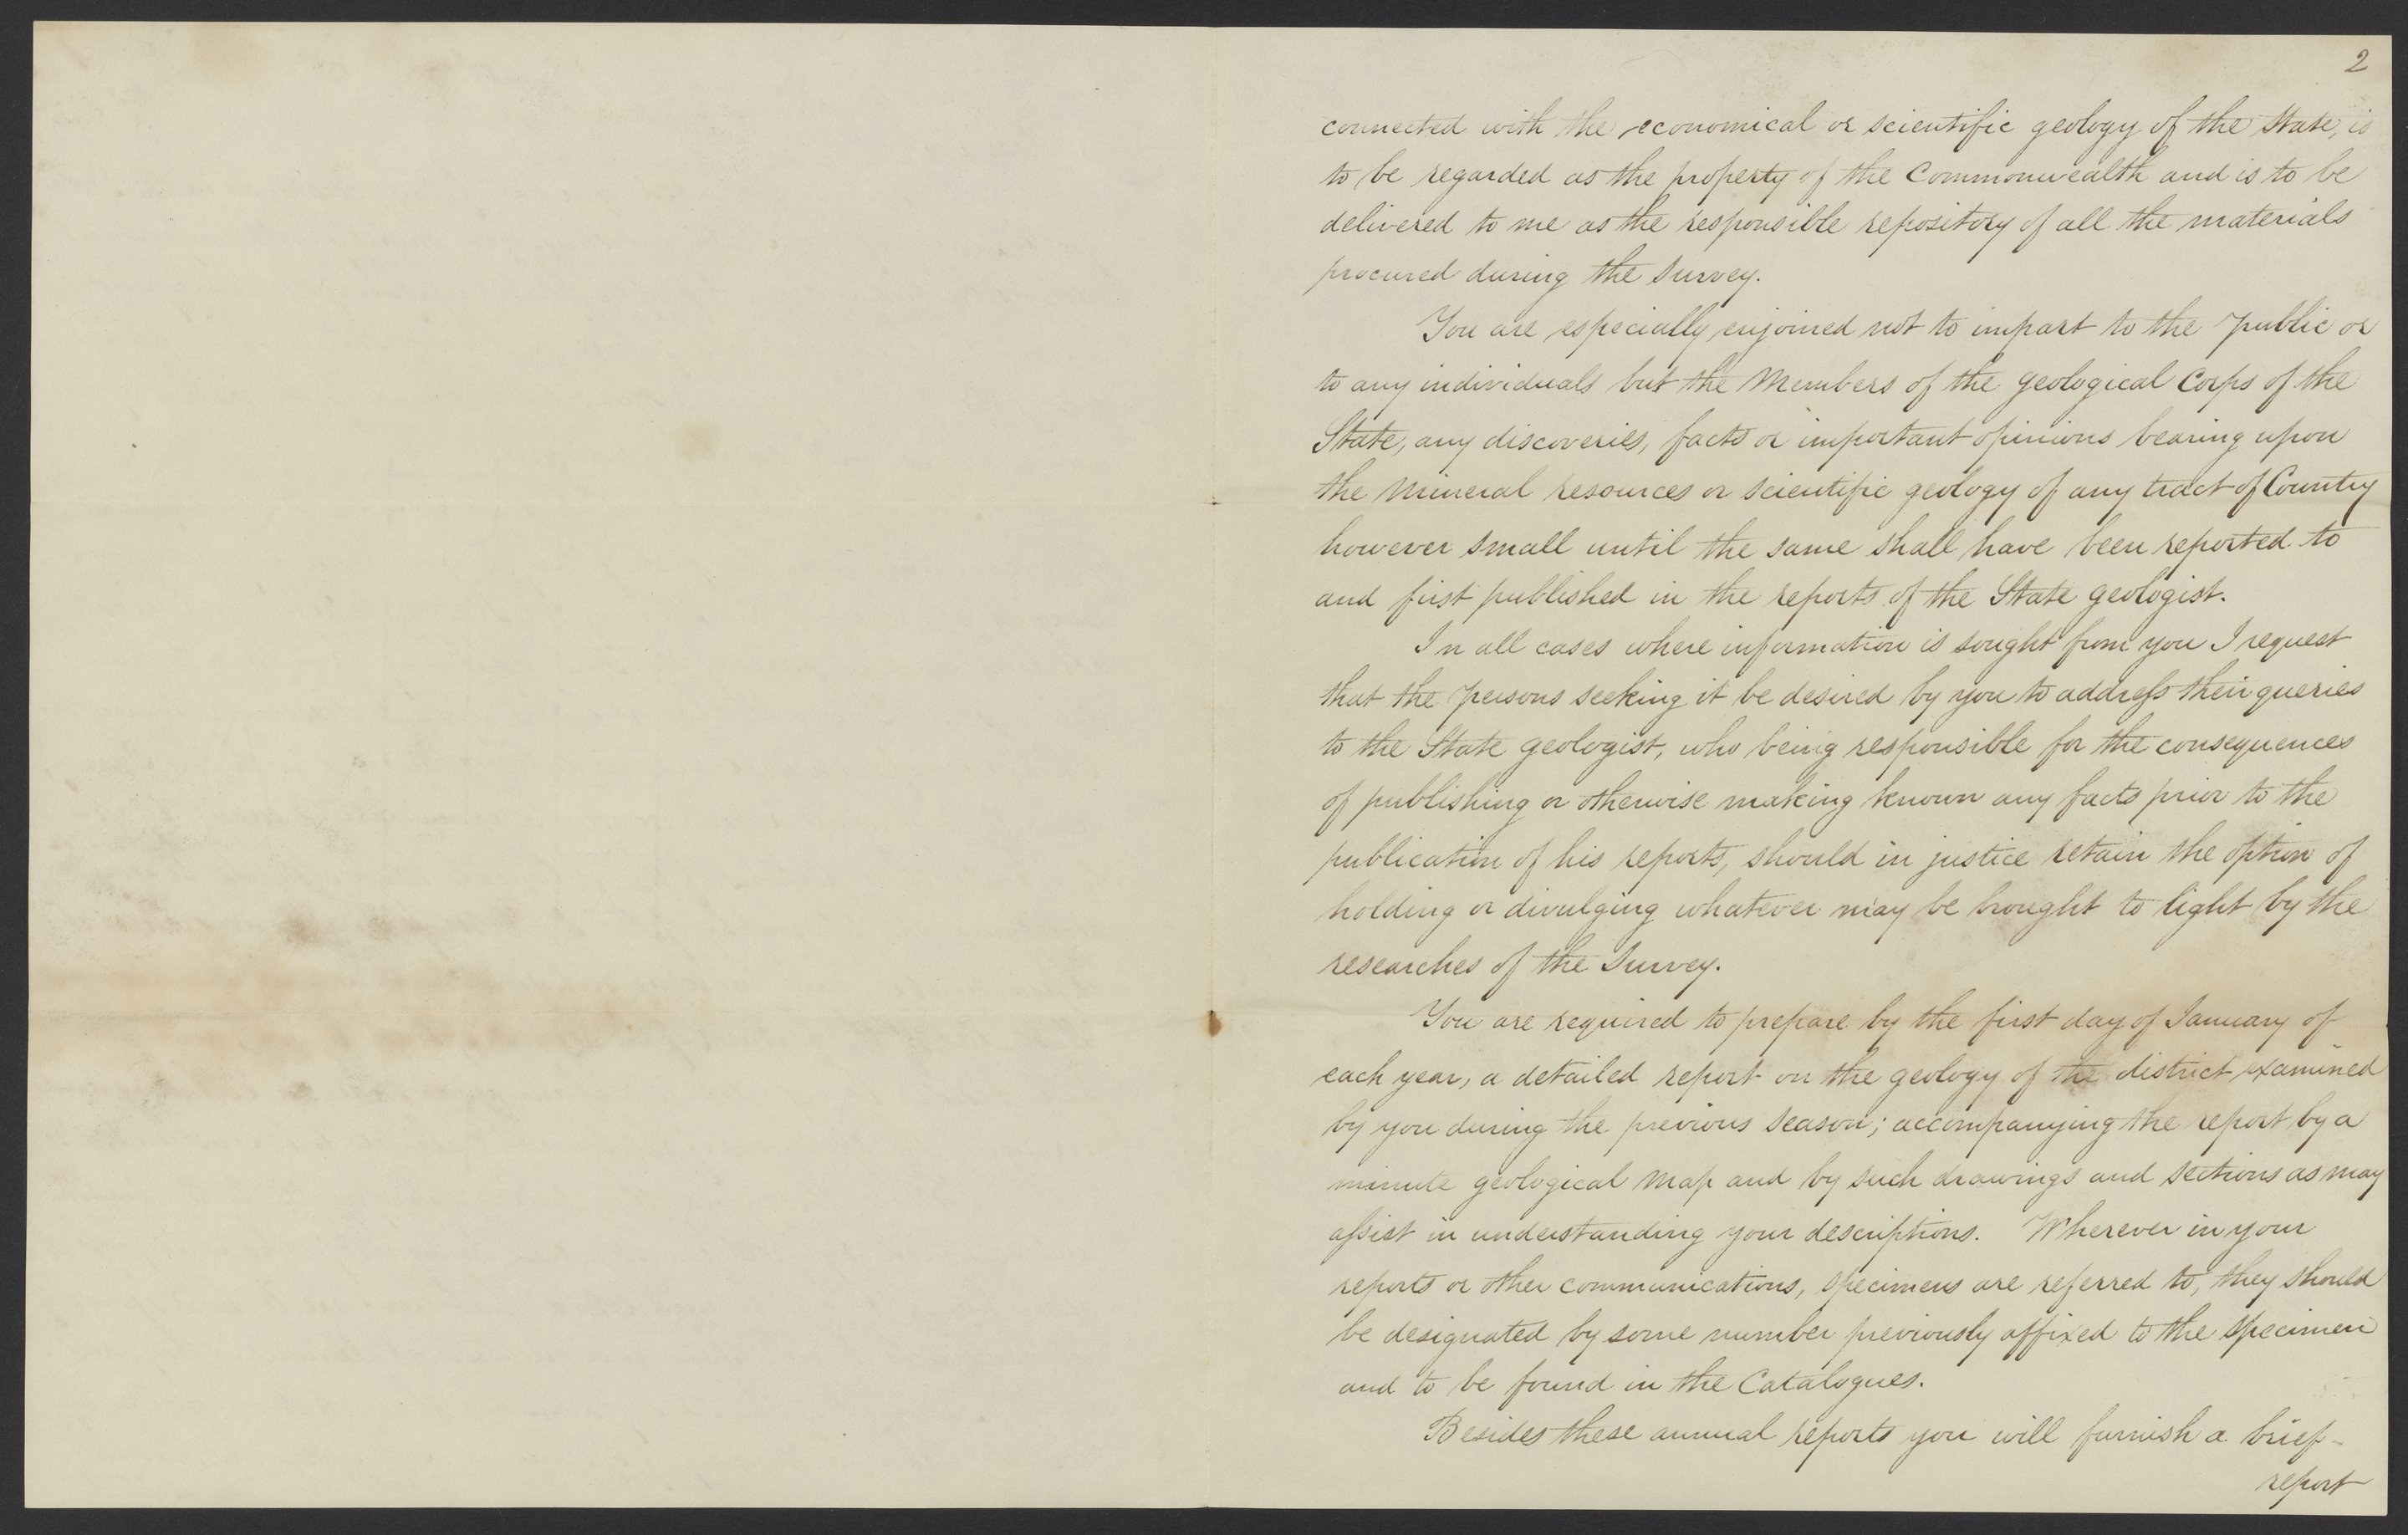 2
connected with the economical or scientific geology of the State, is
to be regarded as the property of the Commonwealth and is to be
delivered to me as the responsible repository of all the materials
procured during the Survey.
You are especially enjoined not to impart to the public or
to any individuals but the Members of the geological Corps of the
State, any discoveries, facts or important opinions bearing upon
the Mineral resources or scientific geology of any tract of Country
however small until the same shall have been reported to
and first published in the reports of the State geologist.
In all cases where information is sought from you I request
that the persons seeking it be desired by you to address their queries
to the State geologist, who being responsible for the consequences
of publishing or otherwise making known any facts prior to the
publication of his reports, should in justice retain the option of
holding or divulging whatever may be brought to light by the
researches of the Survey.
You are required to prepare by the first day of January of
each year, a detailed report on the geology of the district examined
by you during the previous season; accompanying the report by a
minute geological Map and by such drawings and sections as may
assist in understanding your descriptions. Wherever in your
reports or other communications, specimens are referred to, they should
be designated by some number previously affixed to the specimen
and to be found in the Catalogues.
Besides these annual reports you will furnish a brief-
report